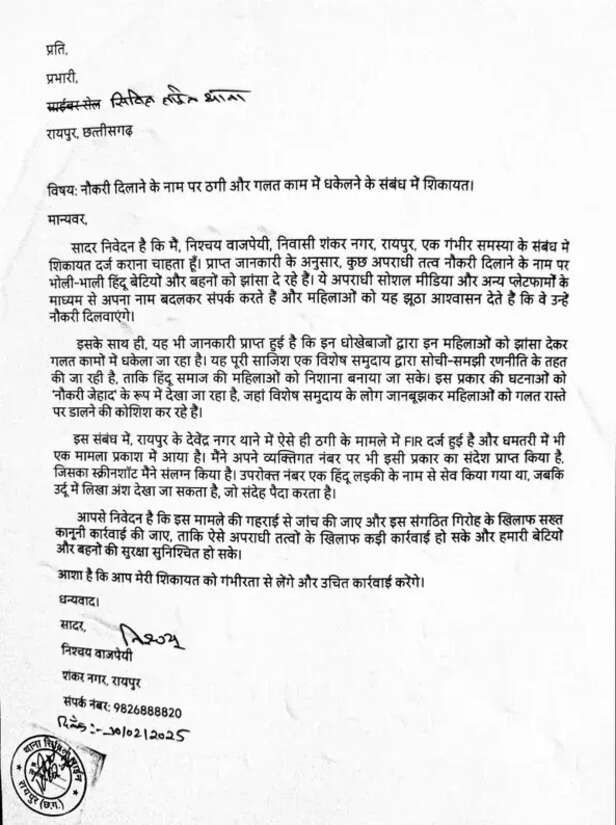 प्रति,
प्रभारी,
साईबर सेल सिविल लाईन थाना
रायपुर, छत्तीसगढ़
विषय: नौकरी दिलाने के नाम पर ठगी और गलत काम में धकेलने के संबंध में शिकायत।
मान्यवर,
सादर निवेदन है कि मैं, निश्चय वाजपेयी, निवासी शंकर नगर, रायपुर, एक गंभीर समस्या के संबंध में
शिकायत दर्ज कराना चाहता हूँ। प्राप्त जानकारी के अनुसार, कुछ अपराधी तत्व नौकरी दिलाने के नाम पर
भोली-भाली हिंदू बेटियों और बहनों को झांसा दे रहे हैं। ये अपराधी सोशल मीडिया और अन्य प्लेटफार्मों के
माध्यम से अपना नाम बदलकर संपर्क करते हैं और महिलाओं को यह झूठा आश्वासन देते हैं कि वे उन्हें
नौकरी दिलवाएंगे।
इसके साथ ही, यह भी जानकारी प्राप्त हुई है कि इन धोखेबाजों द्वारा इन महिलाओं को झांसा देकर
गलत कामों में धकेला जा रहा है। यह पूरी साजिश एक विशेष समुदाय द्वारा सोची-समझी रणनीति के तहत
की जा रही है, ताकि हिंदू समाज की महिलाओं को निशाना बनाया जा सके। इस प्रकार की घटनाओं को
'नौकरी जेहाद' के रूप में देखा जा रहा है, जहां विशेष समुदाय के लोग जानबूझकर महिलाओं को गलत रास्ते
पर डालने की कोशिश कर रहे हैं।
इस संबंध में, रायपुर के देवेंद्र नगर थाने में ऐसे ही ठगी के मामले में FIR दर्ज हुई है और धमतरी में भी
एक मामला प्रकाश में आया है। मैंने अपने व्यक्तिगत नंबर पर भी इसी प्रकार का संदेश प्राप्त किया है,
जिसका स्क्रीनशॉट मैंने संलग्न किया है। उपरोक्त नंबर एक हिंदू लड़की के नाम से सेव किया गया था, जबकि
उर्दू में लिखा अंश देखा जा सकता है, जो संदेह पैदा करता है।
आपसे निवेदन है कि इस मामले की गहराई से जांच की जाए और इस संगठित गिरोह के खिलाफ सख्त
कानूनी कार्रवाई की जाए, ताकि ऐसे अपराधी तत्वों के खिलाफ कड़ी कार्रवाई हो सके और हमारी बेटियों
और बहनों की सुरक्षा सुनिश्चित हो सके।
आशा है कि आप मेरी शिकायत को गंभीरता से लेंगे और उचित कार्रवाई करेंगे।
धन्यवाद।
सादर,
निश्चय वाजपेयी
शंकर नगर, रायपुर
संपर्क नंबर: 9826888820
दिनाँक :- 10/02/2025
थाना सिविल लाईन
रायपुर (छ.ग.)